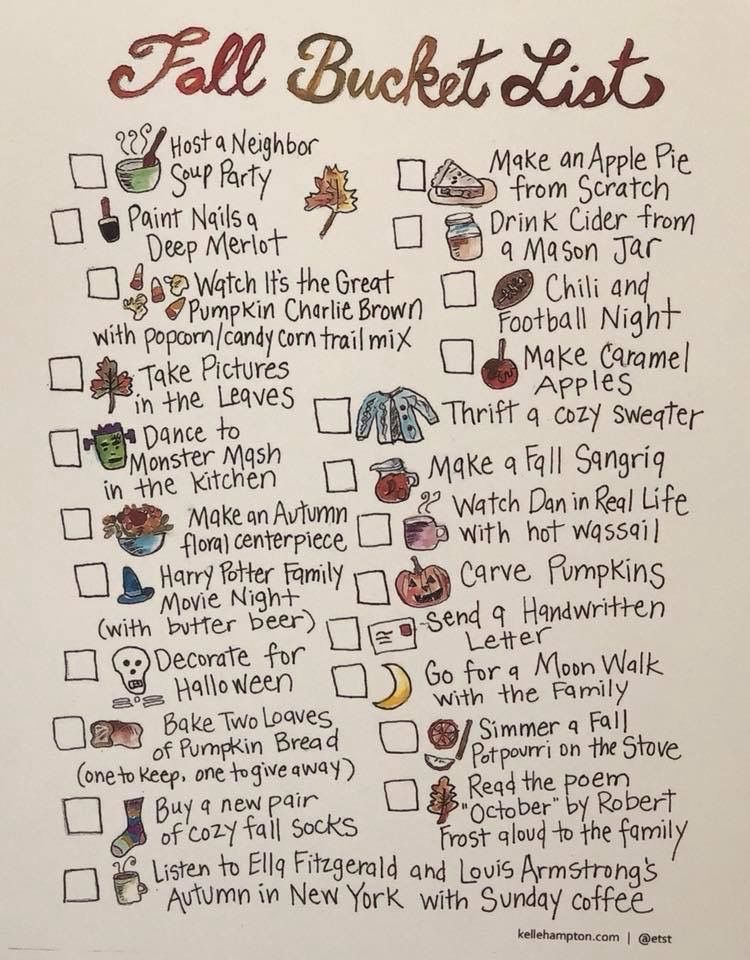 Fall Bucket List
Host a Neighbor
Soup Party
Paint Nails a
Deep Merlot
Watch It's the Great
Pumpkin Charlie Brown
with popcorn/candy corn trail mix
Take Pictures
in the Leaves
Dance to
Monster Mash
in the kitchen
Make an Autumn
floral centerpiece
Harry Potter Family
Movie Night
(with butter beer)
Decorate for
Halloween
Bake Two Loaves
of Pumpkin Bread
(one to keep, one to give away)
Buy a new pair
of cozy fall socks
Make an Apple Pie
from Scratch
Drink Cider from
a Mason Jar
Chili and
Football Night
Make Caramel
Apples
Thrift a cozy sweater
Make a Fall Sangria
Watch Dan in Real Life
with hot wassail
Carve Pumpkins
Send a Handwritten
Letter
Go for a Moon Walk
with the Family
Simmer a Fall
Potpourri on the Stove
Read the poem
"October" by Robert
Frost aloud to the family
Listen to Ella Fitzgerald and Louis Armstrong's
Autumn in New York with Sunday coffee
kellehampton.com | @etst